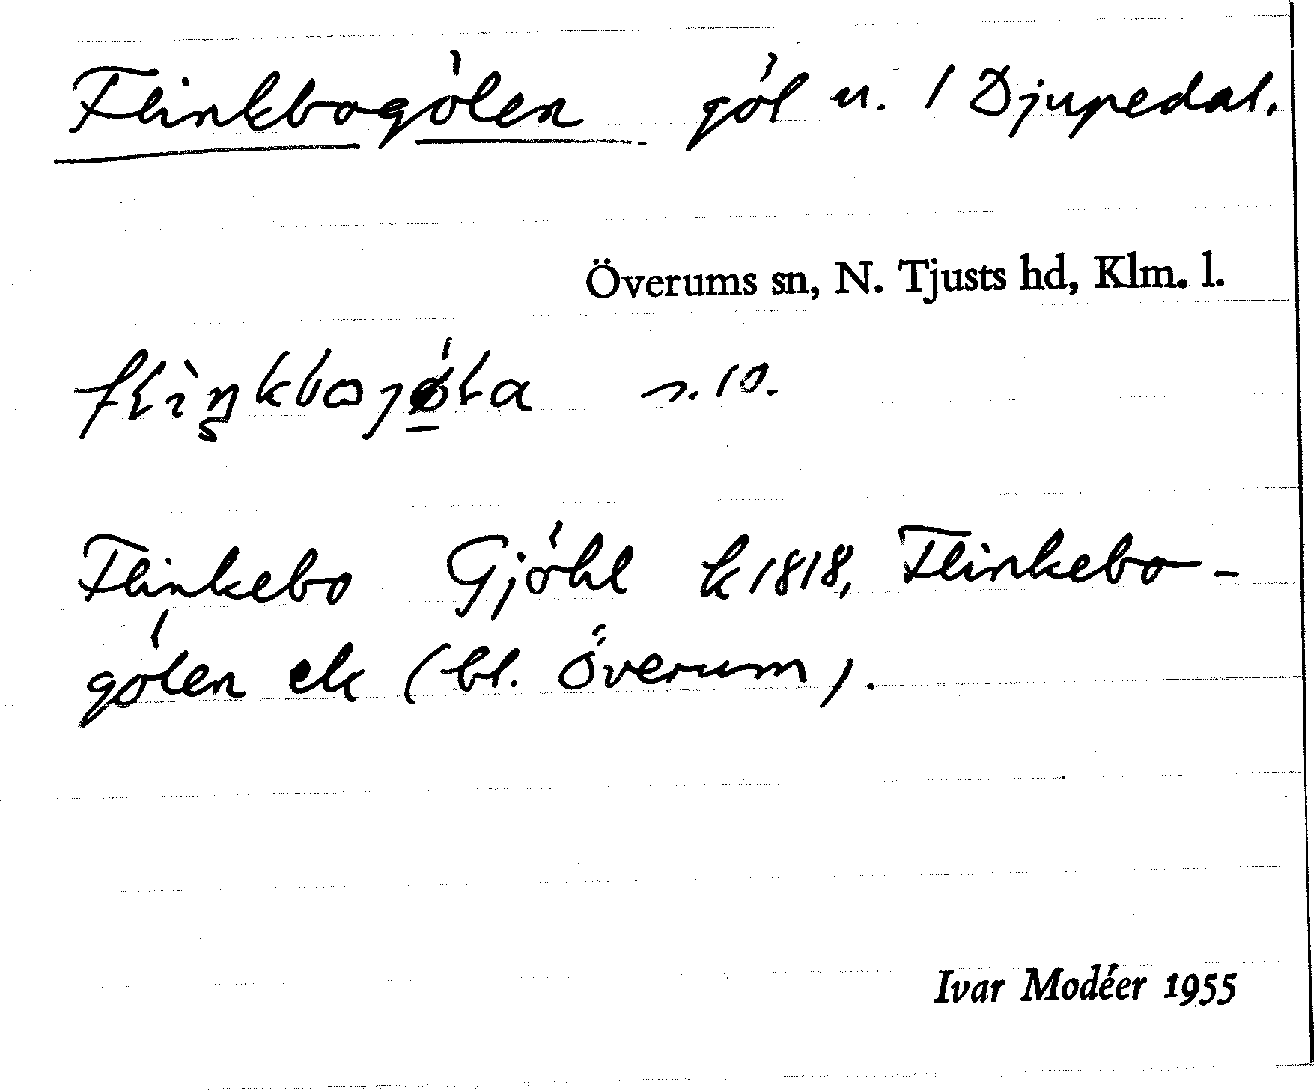 Flinkbogölen göl u. 1 Djupedal.
Överums sn, N. Tjusts hd, Klm. l.
flìŋkbojǿla s. 10.
Flinkebo Gjöhl k 1818, Flinkebo-
gölen ek (bl. Överum).
Ivar Modéer 1955